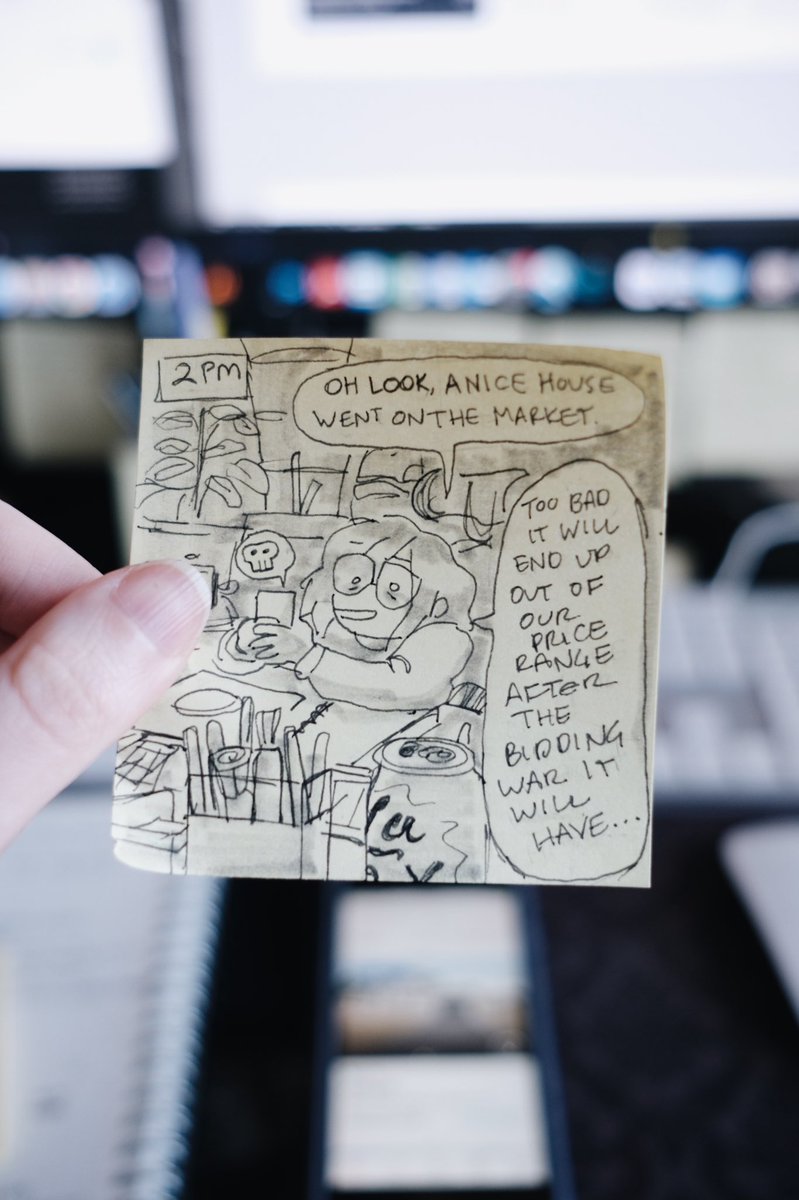 2PM
OH LOOK, A NICE HOUSE
WENT ON THE MARKET.
TOO BAD
IT WILL
END UP
OUT OF
OUR
PRICE
RANGE
AFTER
THE
BIDDING
WAR IT
WILL
HAVE...